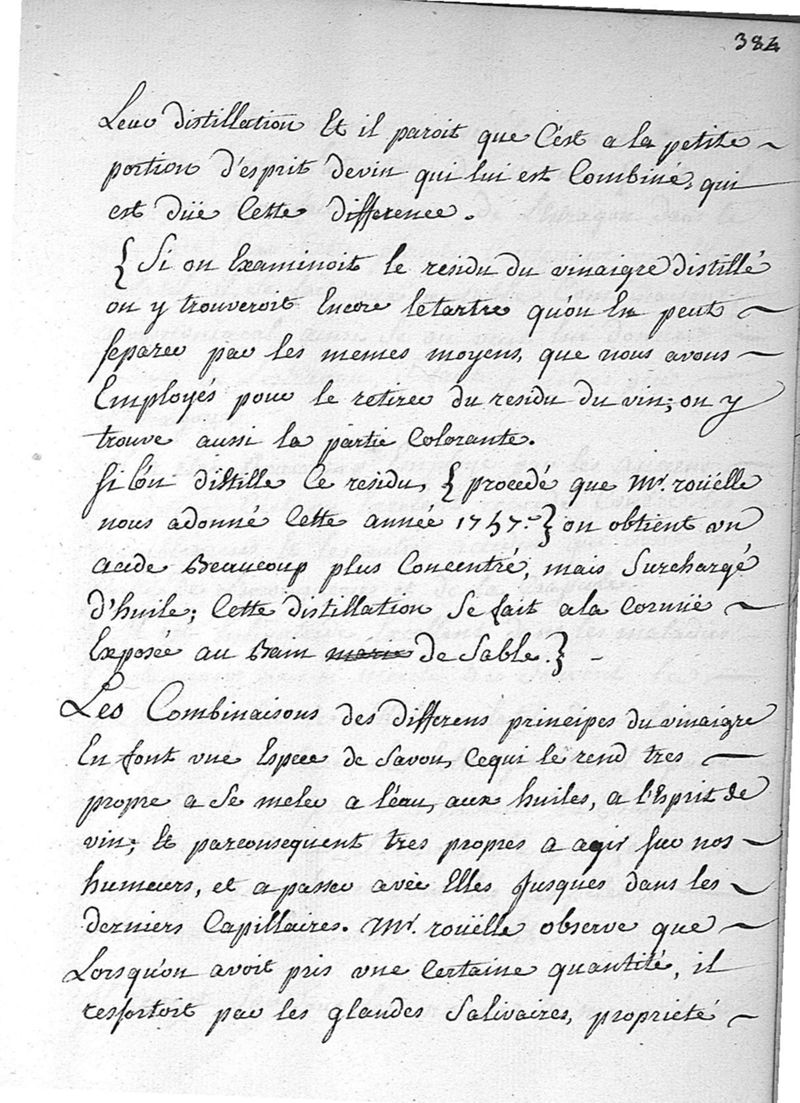 384
Leur distillation Et il paroit que C'est a la petite
portion d'esprit devin qui lui est Combiné, qui
est düe Cette difference.
{ Si on Examinoit le residu du vinaigre distillé
on y trouveroit Encore letartre qu'on En peut
separer par les memes moyens, que nous avons
Employés pour le retirer du residu du vin; on y
trouve aussi la partie Colorante.
si l'on distille Ce residu, { procedé que Mr. roüelle
nous adonné Cette année 1757.} on obtient un
acide Beaucoup plus Concentré, mais Surchargé
d'huile; Cette distillation Se fait ala Cornüe
Exposée au Bain marie de Sable.}
Les Combinaisons des differens principes du vinaigre
En font une Espece de Savon, Cequi le rend tres
propre a Se meler a l'eau, aux huiles, a l'Esprit de
vin; Et parconsequent tres propres a agir sur nos
humeurs, et apasser avec Elles Jusques dans les
derniers Capillaires. Mr. roüelle observe que
Lorsqu'on avoit pris une Certaine quantité, il
ressortoit par les glandes Salivaires, proprieté